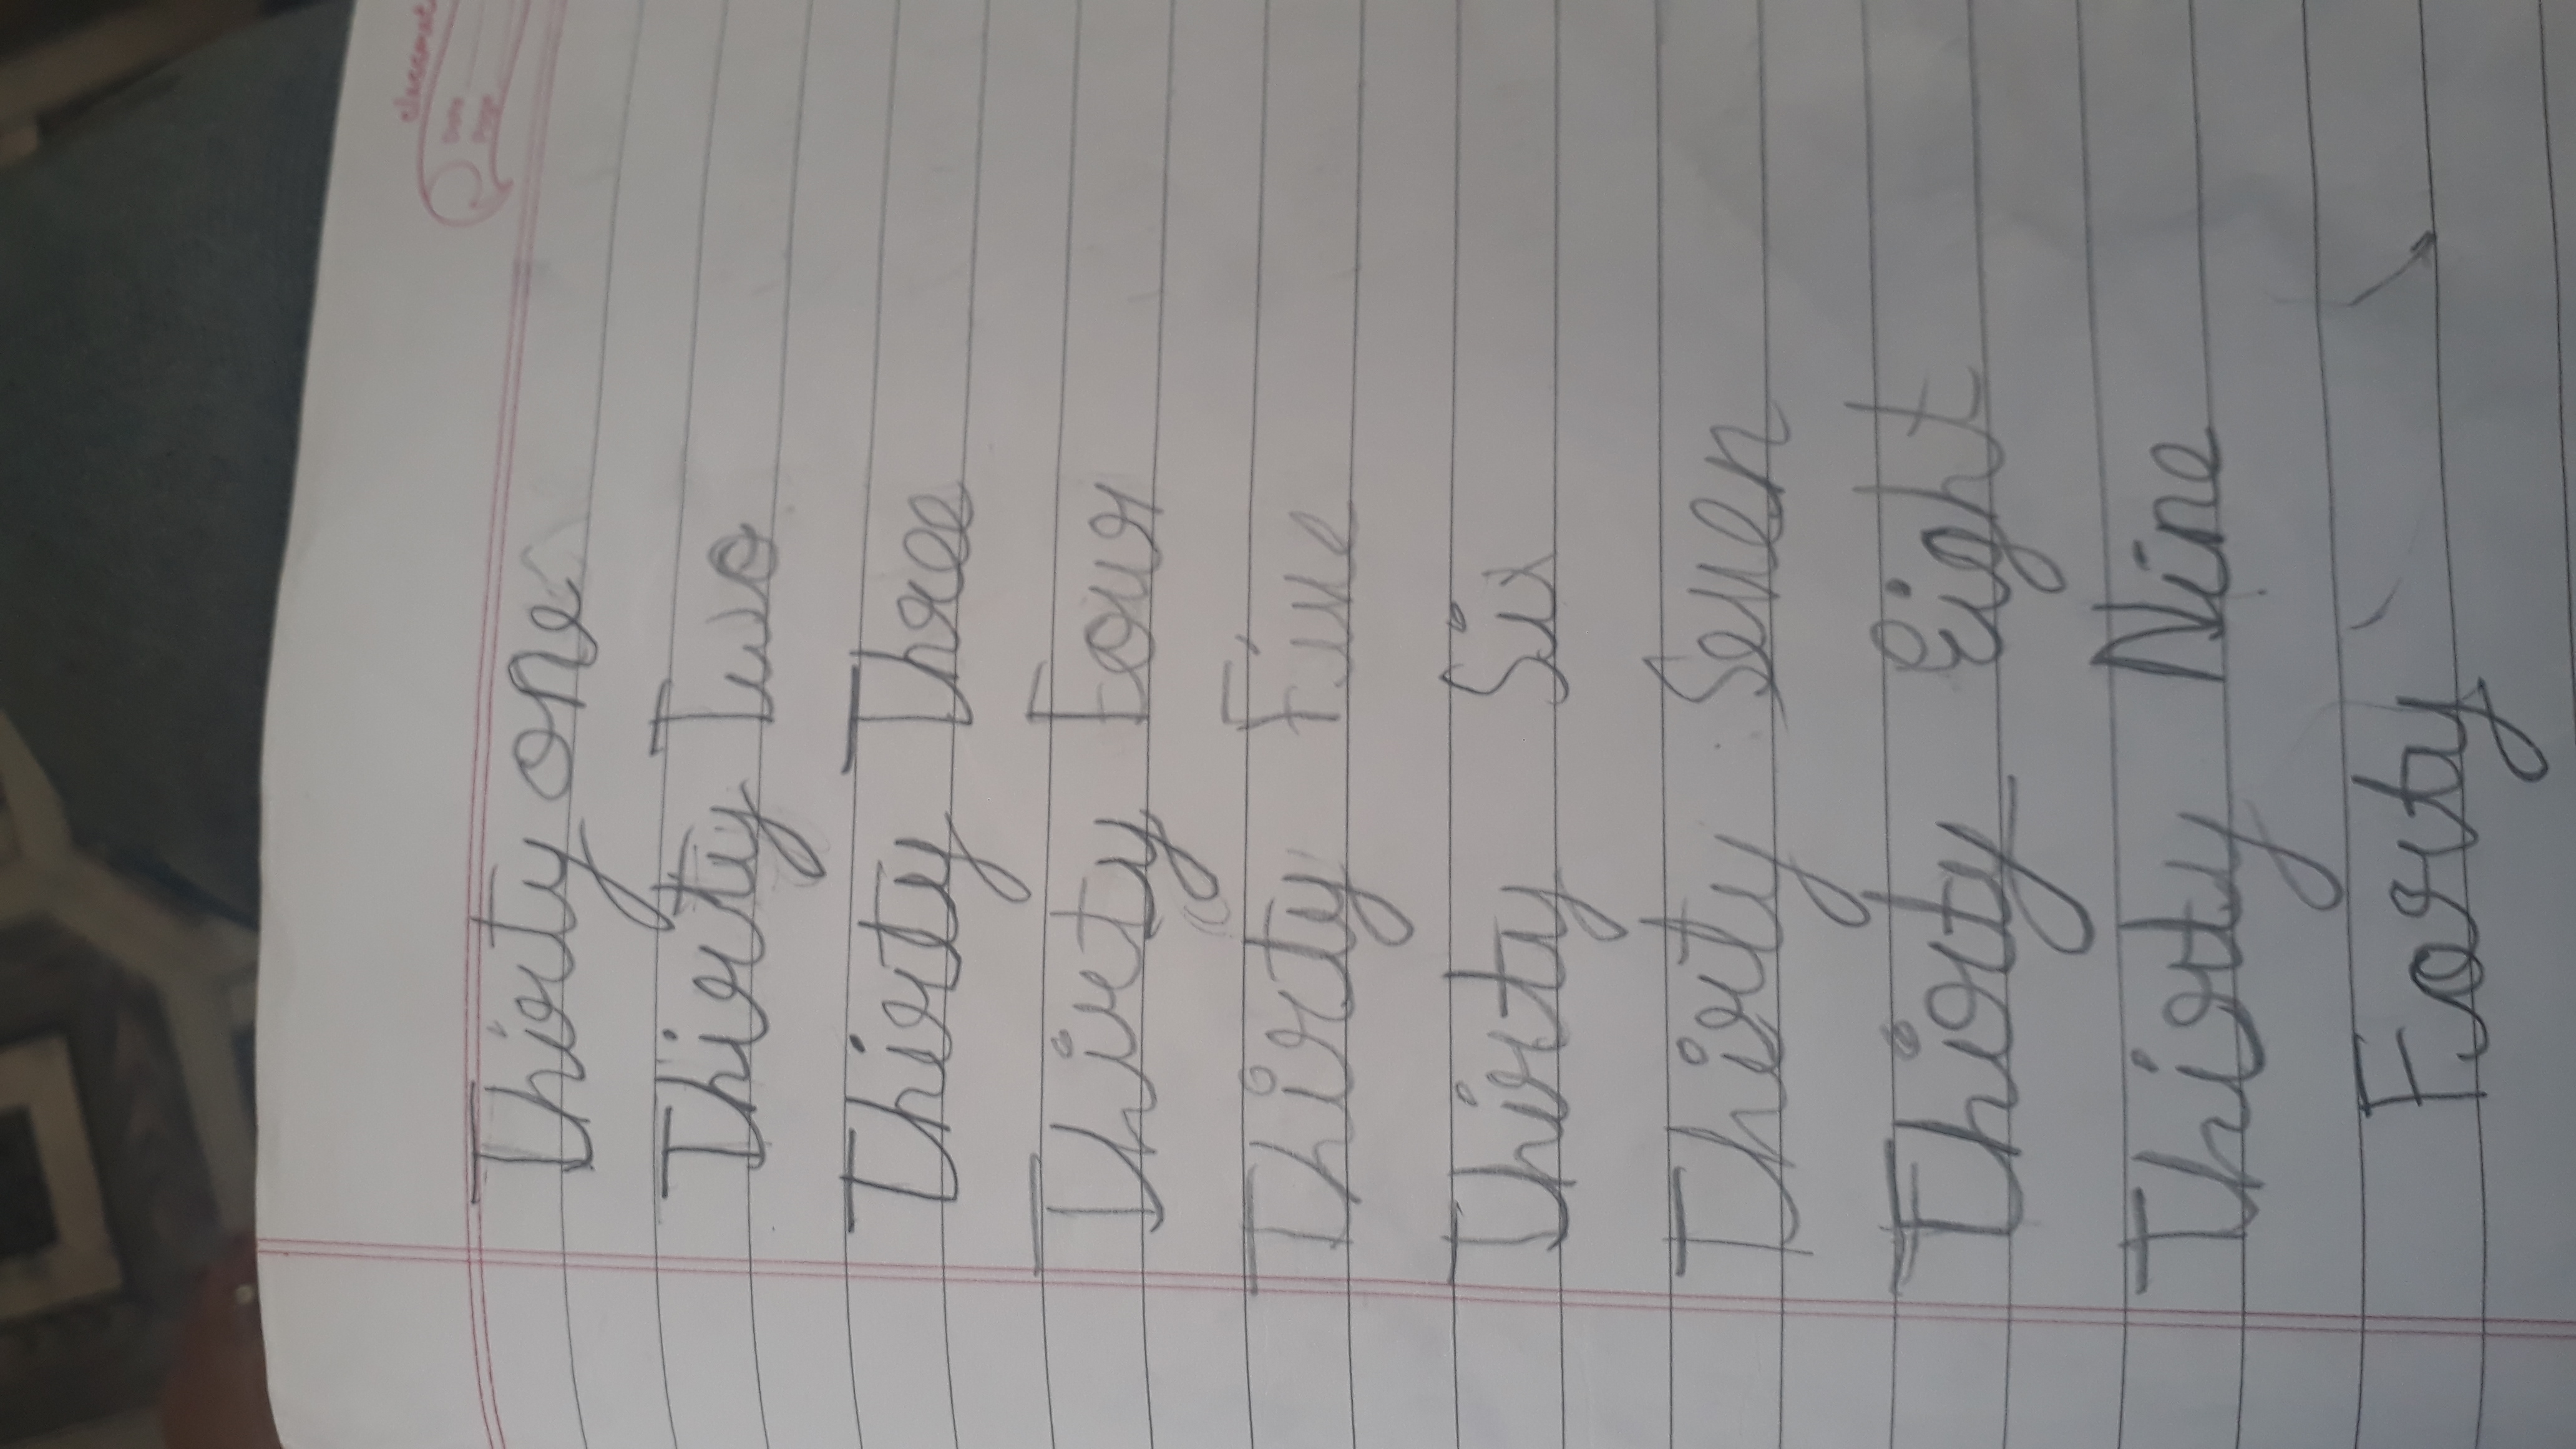 classmate
Date
Page
Thirty one
Thirty Two
Thirty Three
Thirty Four
Thirty Five
Thirty Six
Thirty Seven
Thirty Eight
Thirty Nine
Forty